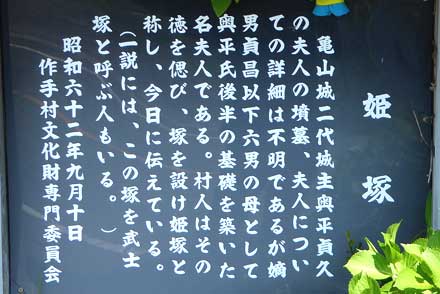 姫塚
亀山城二代城主奥平貞久
の夫人の墳墓、夫人につい
ての詳細は不明であるが嫡
男貞昌以下六男の母として
奥平氏後半の基礎を築いた
名夫人である。村人はその
徳を偲び、塚を設け姫塚と
称し、今日に伝えている。
(一説には、この塚を武士
塚と呼ぶ人もいる。)
昭和六十二年九月十日
作手村文化財専門委員会